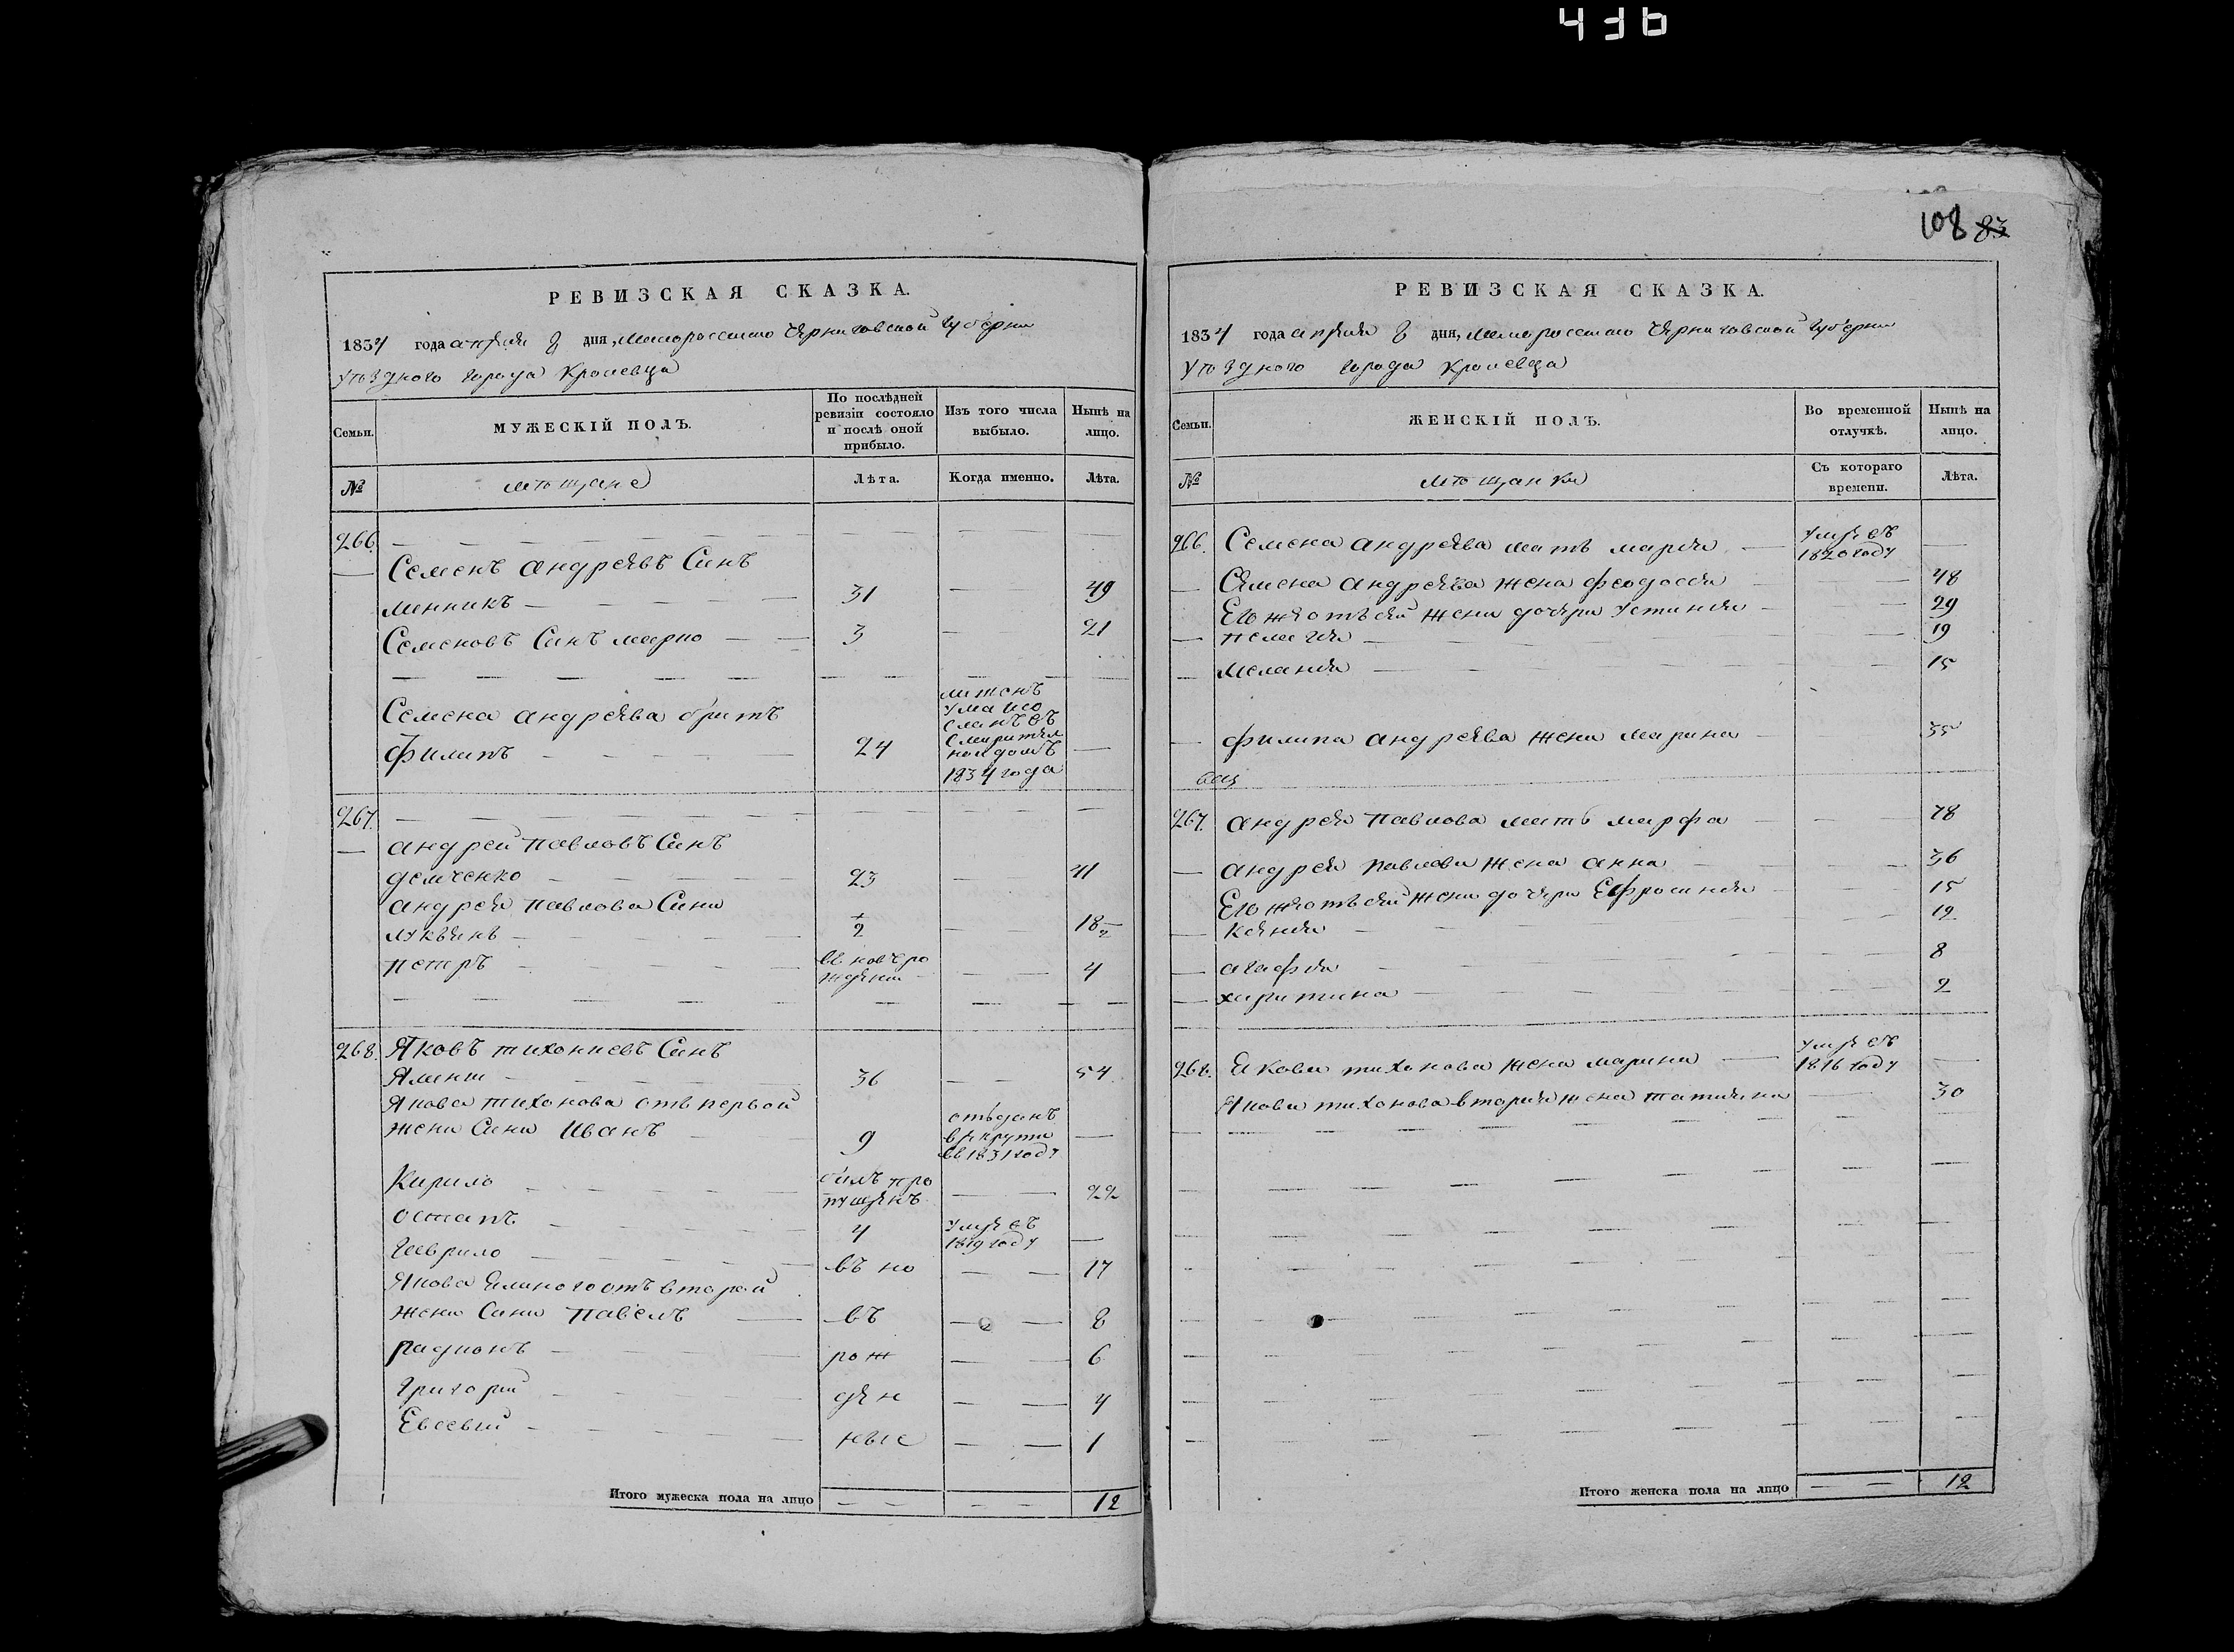 436
108 83
РЕВИЗСКАЯ СКАЗКА.
1834 года апреля 8 дня, Малороссийско Черниговской губернии
уѣздного города Кролевца
Семьи.
МУЖЕСКІЙ ПОЛЪ.
По послѣдней ревизіи состояло и послѣ оной прибыло.
Изъ того числа выбыло.
Нынѣ на лицо.
№
мѣщане
Лѣта.
Когда именно.
Лѣта.
266.
Семенъ андреевъ Синъ
31 49
Семеновъ Синъ марко 3 21
Семена андреева братъ
филипъ 24
лишенъ
ума
сланъ въ
смирител
ной домъ
1834 года
267.
андрей павловъ Синъ
демченко 23 41
андрея павлова Сини
лукъянъ 2 18
петръ вь новъ ро
ждени 4
268. Яковъ тихониевъ Синъ
36 54
Якова тихонова отъ первой
жени Сини Иванъ 9
отъданъ
в рекрути
вь 1831 году
Кирило билъ про
пущенъ 22
остапъ 4 умре въ
1819 году
Гаврило въ но 17
Якова отъ второй
жени Сини павелъ въ 8
радионъ рож 6
григорий ден 4
Евсевий ные 1
Итого мужеска пола на лицо 12
РЕВИЗСКАЯ СКАЗКА.
1834 года апреля 8 дня, Малороссийско Черниговской губернии
уѣздного города Кролевца
Семьи.
ЖЕНСКІЙ ПОЛЪ.
Во временной отлучкѣ.
Нынѣ на лицо.
№
мѣщанки
Съ котораго времени.
Лѣта.
266. Семена андреева мать мария умре въ
1820 году
Семена андреева жена феодосия 48
Его же отъ сей жени дочери устиния 29
пелагия 19
мелания 15
филипа андреева жена марина 35
267. андрея павлова мать марфа 78
андрея павлова жена анна 36
Его же отъ сей жени дочери Ефросиния 15
Ксения 12
агафия 8
харитина 2
268. Якова тихонова жена марина умре въ
1816 году
Якова тихонова вторая жена татияна 30
Итого женска пола на лицо 12